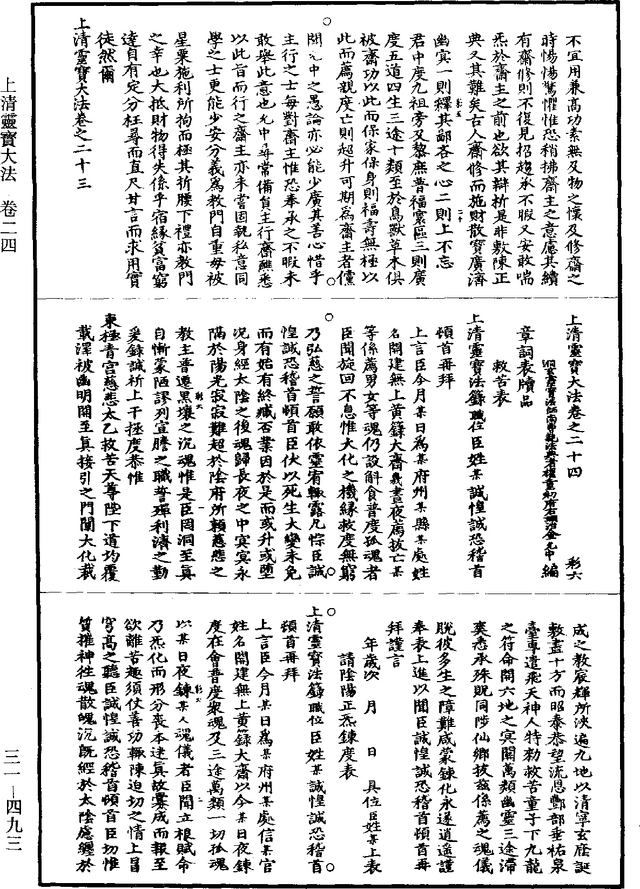 不宜用兼高功素無及物之懷及修齋之
時惕惕驚懼惟恐稍拂齋主之意應其續
有齋修則不復見招趨承不暇又安敢喘
炁於齋主之前也欲其辯析是非敷陳正
典又其難矣古人齋修而施財散寶廣濟
幽冥一則釋其鄙吝之心二則上不忘
君中度九祖旁及黎庶普福寰區三則廣
度五道四生三途十類至於鳥獸草木俱
被齋功以此而保家保身則福壽無極以
此而薦親度亡則超升可期為齋主者儻
聞允中之愚論亦必能少廣其善心惜乎
主行之士每對齋主惟恐奉承之不暇未
敢舉此意也允中尋常備員主行齋醮悉
以此旨而行之齋主亦未嘗固執私意同
學之士更能少安分義為教門自重毋被
星粟施利所拘而極其折腰下禮亦教門
之幸也大抵財物得失係乎宿緣貧富窮
達自有定分枉尋而直尺甘言而求用實
徒然爾
上清靈寶大法卷之二十三
上清靈寶大法卷之二十四
洞玄靈寶法師南曹執法典者權童初府右翊治金允中編
章詞表牘品
救苦表
上清靈寶法籙職位臣姓某誠惶誠恐稽首
頓首再拜
上言臣今月某日為某府州某縣某處姓
名開建無上黃籙大齋幾晝夜薦拔亡某
等係薦男女等魂仍設斛食普度孤魂者
臣聞旋回不息惟大化之機緣救度無窮
乃弘慈之誓願敢依靈宥輒露凡悰臣誠
惶誠恐稽首頓首臣伏以死生大變未免
而有始有終臧否業因於是而或升或墮
況身經太陰之後魂歸長夜之中冥冥永
隔於陽光寂寂難超於陰府所賴慈悲之
教主普遷黑壤之沉魂惟是臣罔洞至真
自慚蒙陋謬列宣牘之職誓殫利濟之勤
爰錄誠祈上干極度恭惟
東極青宮慈悲太乙救苦天尊陛下道均覆
載澤被幽明開至真接引之門闡大化裁
成之教宸輝所浹遍九地以清寧玄座誕
敷盡十方而昭泰恭望流恩酆部垂祐泉
臺專遣飛天神人特勑救苦童子下九龍
之符命開六地之冥關萬類幽靈三途滯
爽悉承殊貺同陟仙鄉拔茲係薦之魂儀
脫彼多生之障難咸蒙鍊化永遂逍遙謹
奉表上進以聞臣誠惶誠恐稽首頓首再
拜謹言
年歲次　月　日　具位臣姓某上表
請陰陽正炁鍊度表
上清靈寶法籙職位臣姓某誠惶誠恐稽首
頓首再拜
上言臣今月某日為某府州某處信某官
姓名開建無上黃籙大齋以今某日夜鍊
度在會普度衆魂及三途萬類一切孤魂
以某日夜鍊某人魂儀者臣聞立根賦命
乃炁化而形分喪本迷真故業成而報至
欲離苦趣須仗善功輒陳迫切之情上冒
穹高之聽臣誠惶誠恐稽首頓首臣切惟
質摧神徃魂散魄沉既經於太陰應纏於
上清靈寶大法　卷二四
三一—四九三